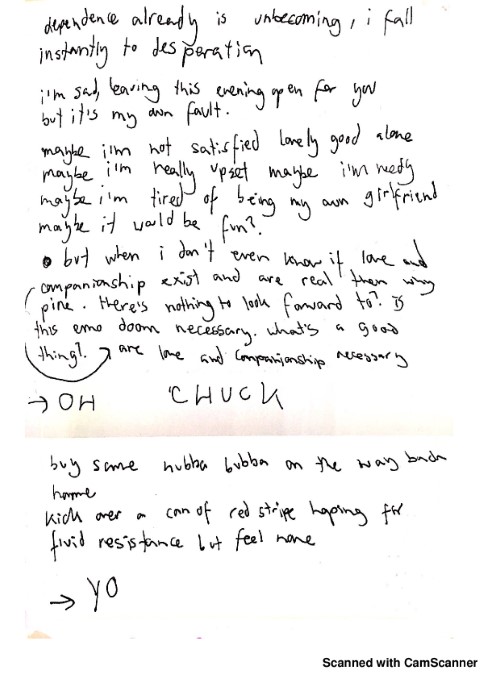 dependence already is unbecoming, i fall
instantly to desperation
i'm sad, leaving this evening open for you
but it's my own fault.
maybe i'm not satisfied lonely good alone
maybe i'm really upset maybe i'm needy
maybe i'm tired of being my own girlfriend
maybe it would be fun?
but when i don't even know if love and
companionship exist and are real then why
pine. there's nothing to look forward to? is
this emo doom necessary. what's a good
thing?. → are love and companionship necessary
→ OH CHUCK
buy some hubba bubba on the way back
home
kick over a can of red stripe hoping for
fluid resistance but feel none
→ YO
Scanned with CamScanner